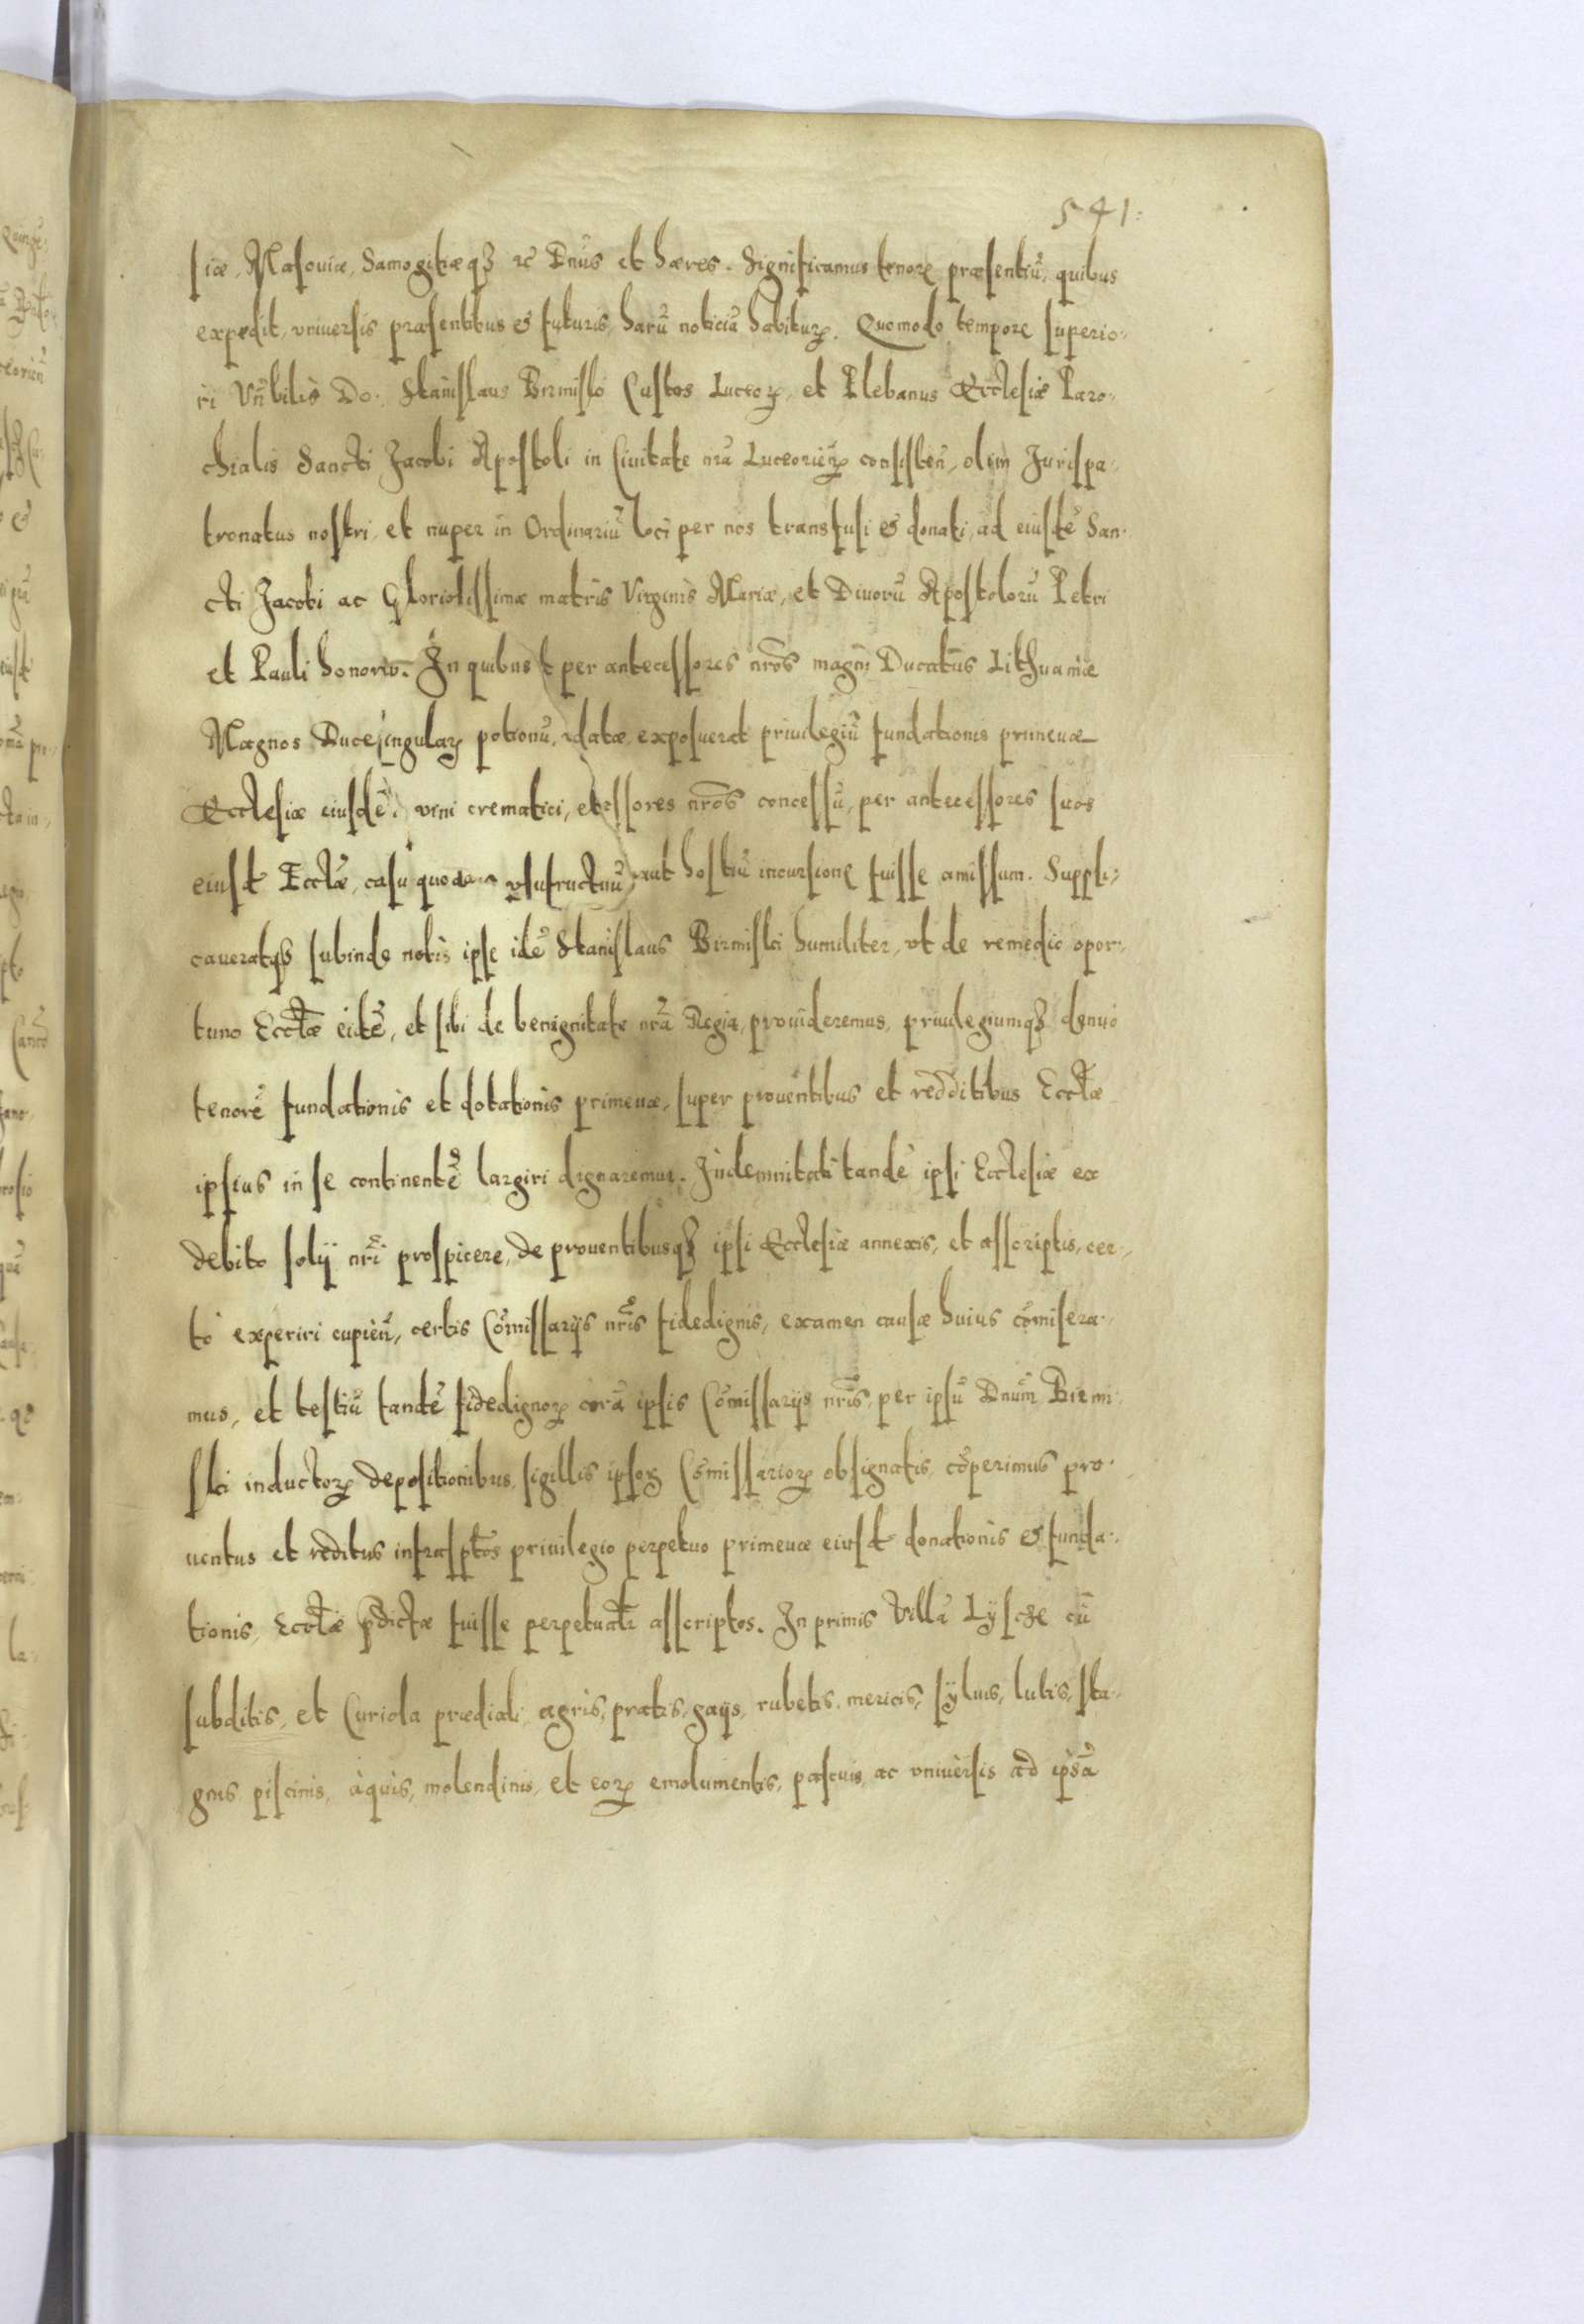 541:
siæ, Masoviæ, Samogitiæqȝ ⁊c Dnūs et hæres. Significamus tenorę præsentiū, quibus
expedit, vniversis præsentibus & futuris, harū noticiā habituꝝ. Quomodo tempore superio-
ri Vn̄bilis Do. Stanislaus Birmisko Custos Luceoꝝ, et Plebanus Ecclesiæ Paro-
chialis Sancti Jacobi Apostoli in Civitate nrā Luceorieñ consisteñ, olim Jurispa-
tronatus nostri, et nuper in Ordinariū loci per nos transfusi & donati, ad eiusdē San-
cti Jacobi ac Gloriosissimæ matris Virginis Mariæ, et Divorū Apostolorū Petri
et Pauli honorē. In quibus t per antecessores nrōs magni Ducatūs Lithvaniæ
Magnos Duce singulaꝝ potionū, datæ, exposuerat privilegiū fundationis primevæ
Ecclesiæ eiusdē, vini crematici, et essores nrōs concessū, per antecessores suos
eiusd Ecctæ, casu quodam vsufructuū aut hostiū incursionę fuisse amissum. Suppli-
caveratqȝ subinde nobis ipse idē Stanislaus Birmiski humiliter, vt de remedio opor-
tuno Ecctæ eidē, et sibi de benignitate nrā Regia, provideremus, privilegiumqȝ denuò
tenorē fundationis et dotationis primevæ, super proventibus et redditibus Ecctæ
ipsius in se continentē largiri dignaremur. Indemnitati tandē ipsi Ecclesiæ ex
debito solij nrī prospicere, de proventibusqȝ ipsi Ecclesiæ annexis, et asscriptis, cer-
tò experiri cupieñ, certis Cōmissarijs nrīs fidedignis, examen causæ huius cōmisera-
mus, et testiū tandē fidedignoꝝ corā ipsis Cōmissarijs nrīs, per ipsū Dnum Birmi-
ski inductoꝝ depositionibus, sigillis ipsoꝝ Cōmissarioꝝ obsignatis, cōperimus pro-
ventus et reditus infrasptos privilegio perpetuo primevæ eiusd donationis & funda-
tionis, Ecctæ p̄dictæ fuisse perpetuatr asscriptos. In primis Villā Lyscze cū
subditis, et Curiola prædiali, agris, pratis, gaijs, rubetis, mericis, sylvis, lutis, sta-
gnis, piscinis, àquis, molendinis, et eoꝝ emolumentis, pascuis, ac vniversis ad ipsā